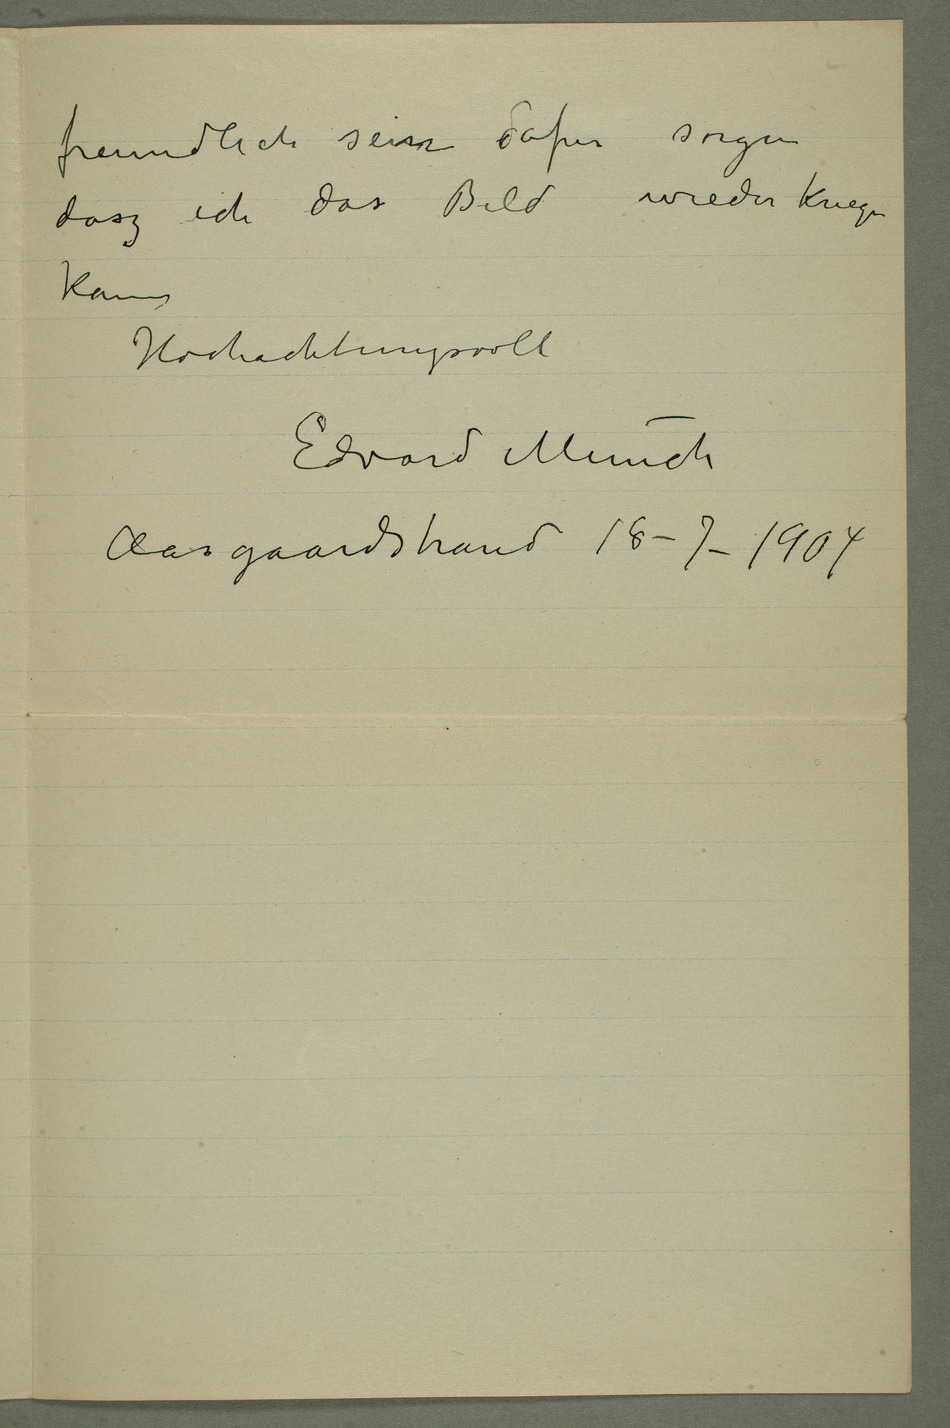 freundlich sein dafur sorgen
dasz ich das Bild wieder kriegen
kann
Hochachtungsvoll
Edvard Munch
Aasgaardstrand 18–7– 1904